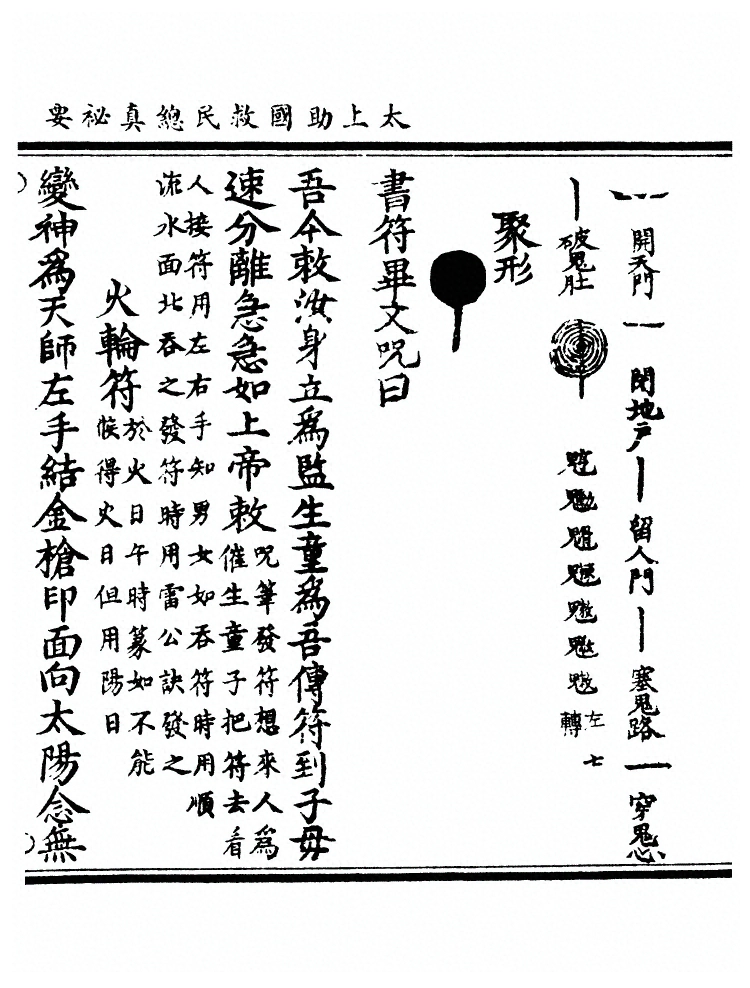 太上助國救民總真祕要
開天門 閉地戶 留人門 塞鬼路 穿鬼心
破鬼肚
左轉七
聚形
書符畢文呪曰
吾今敕汝身立爲監生童爲吾傳符到子母
速分離急急如上帝敕
呪筆發符想來人爲
催生童子把符去看
人接符用左右手知男女如吞符時用順
流水面北吞之發符時用雷公訣發之
火輪符
於火日午時篆如不能
候得火日但用陽日
變神爲天師左手結金槍印面向太陽念無